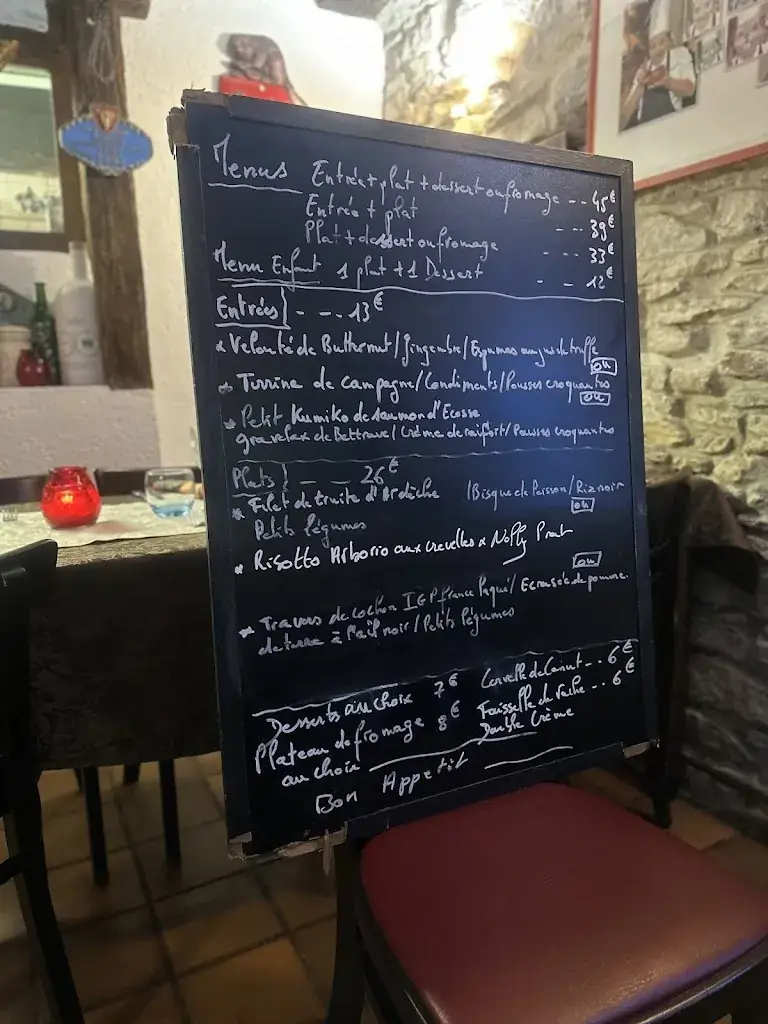 Menus Entrée + plat + dessert ou fromage -- 45€
Entrée + plat --- 39€
Plat + dessert ou fromage --- 33€
Menu Enfant 1 plat + 1 Dessert - - 12€
Entrées} - -- 13€
* Velouté de Butternut / Gingembre / Espumas au jus de truffe
ou
* Terrine de campagne / Condiments / Pousses croquantes
ou
* Petit Kumiko de saumon d'Ecosse
gravelax de Bettrave / Crème de raifort / Pousses croquantes
Plats} - - -- 26€
* Filet de truite d'Ardèche / Bisque de Poisson / Riz noir
Petits légumes
ou
* Risotto Arborio aux crevettes x Noilly Prat
ou
* Travers de cochon IGP france laqué / Ecrasée de pomme
de terre à l'ail noir / Petits légumes
Desserts au choix 7€
Plateau de fromage 8€
au choix
Cervelle de Canut -- 6€
Faisselle de Vache -- 6€
Double Crème
Bon Appetit